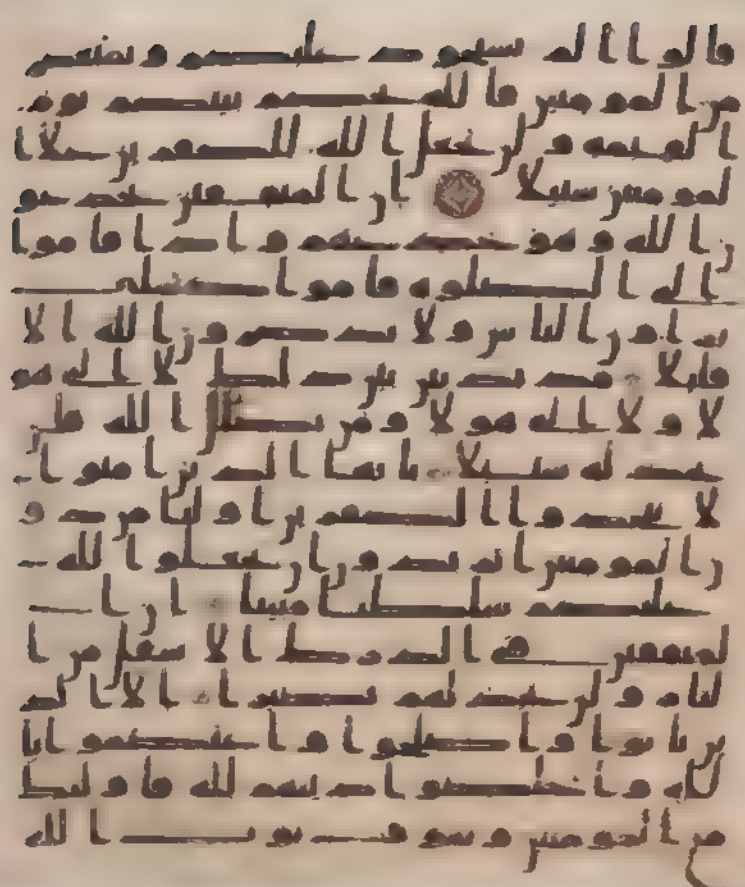 قالوا الم نستحوذ عليكم ونمنعكم
من المومنين فالله يحكم بينكم يوم
القيمه ولن يجعل الله للكفرين علا ا
لمومنين سبيلا ان المنفقين يخدعو
ن الله وهو خدعهم واذا قاموا
الى الصلوه قاموا كسلى
يراون الناس ولا يذكرون الله الا
قليلا مذبذبين بين ذلك لا الى هو
لا ولا الى هولا ومن يضلل الله فلن
تجد له سبيلا يايها الذين امنوا
لا تتخذوا الكفرين اوليا من دو
ن المومنين اتريدون ان تجعلوا لله
عليكم سلطنا مبينا ان ا
لمنفقين في الدرك الاسفل من ا
لنار ولن تجد لهم نصيرا الا الذ
ين تابوا واصلحوا واعتصموا با
لله واخلصوا دينهم لله فاوليك
مع المومنين وسوف يوت الله